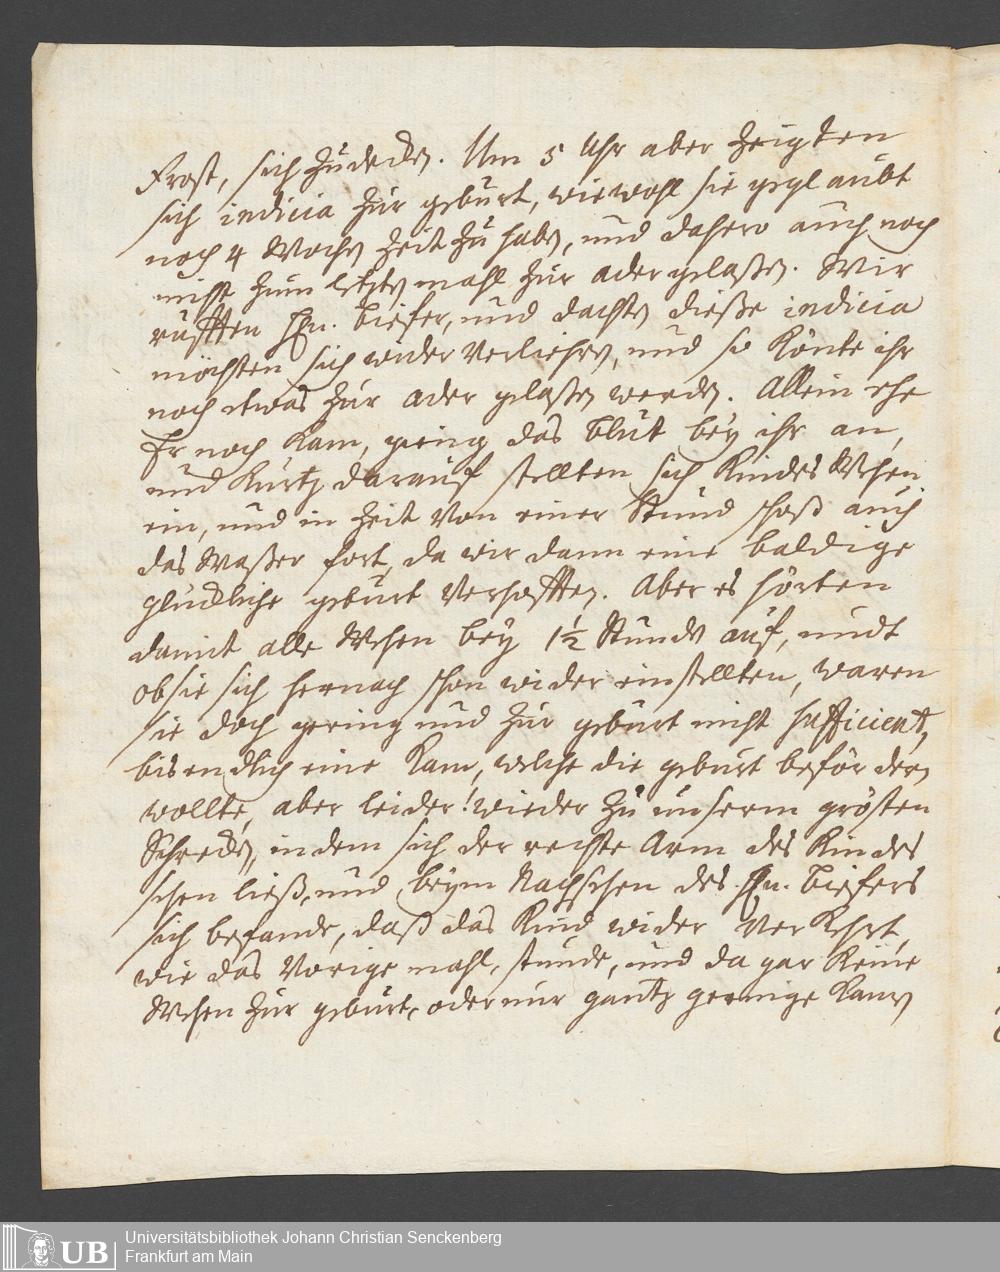 Frost, sich zudecken. Um 5 Uhr aber zeigten
sich indicia zur geburt, wiewohl sie geglaubt
noch 4 Wochen Zeit zu haben, und dahero auch noch
nicht zum letzten mahl zur ader gelaßen. Wir
rufften Hn. Tiefer, und dachten dieße indicia
möchten sich wider verliehren, und sie könte ihr
noch etwas zur Ader gelaßen werden. Allein ehe
Er noch kam, gieng das blut bey ihr an,
und kurtz darauf stellten sich Kindes Wehen
ein, und in Zeit von einer Stund schoß auch
das Waßer fort, da wir dann eine baldige
glückliche geburt verhofften. Aber es hörten
damit alle Wehen bey 1½ Stunde auf, undt
ob sie sich hernach schon wider einstellten, waren
sie doch gering und zur geburt nicht sufficient,
bis endlich eine kam, welche die geburt befördern
wollte, aber leider! wieder zu unserm grösten
Schrecken, indem sich der rechte Arm des Kindes
sehen ließ, und beym Nachsehen des Hn. Tiefers
sich befande, daß das Kind wider verkehrt,
wie das vorige mahl, stunde, und da gar keine
Wehen zur geburt, oder nur gantz geringe kamen
Universitätsbibliothek Johann Christian Senckenberg
UB Frankfurt am Main